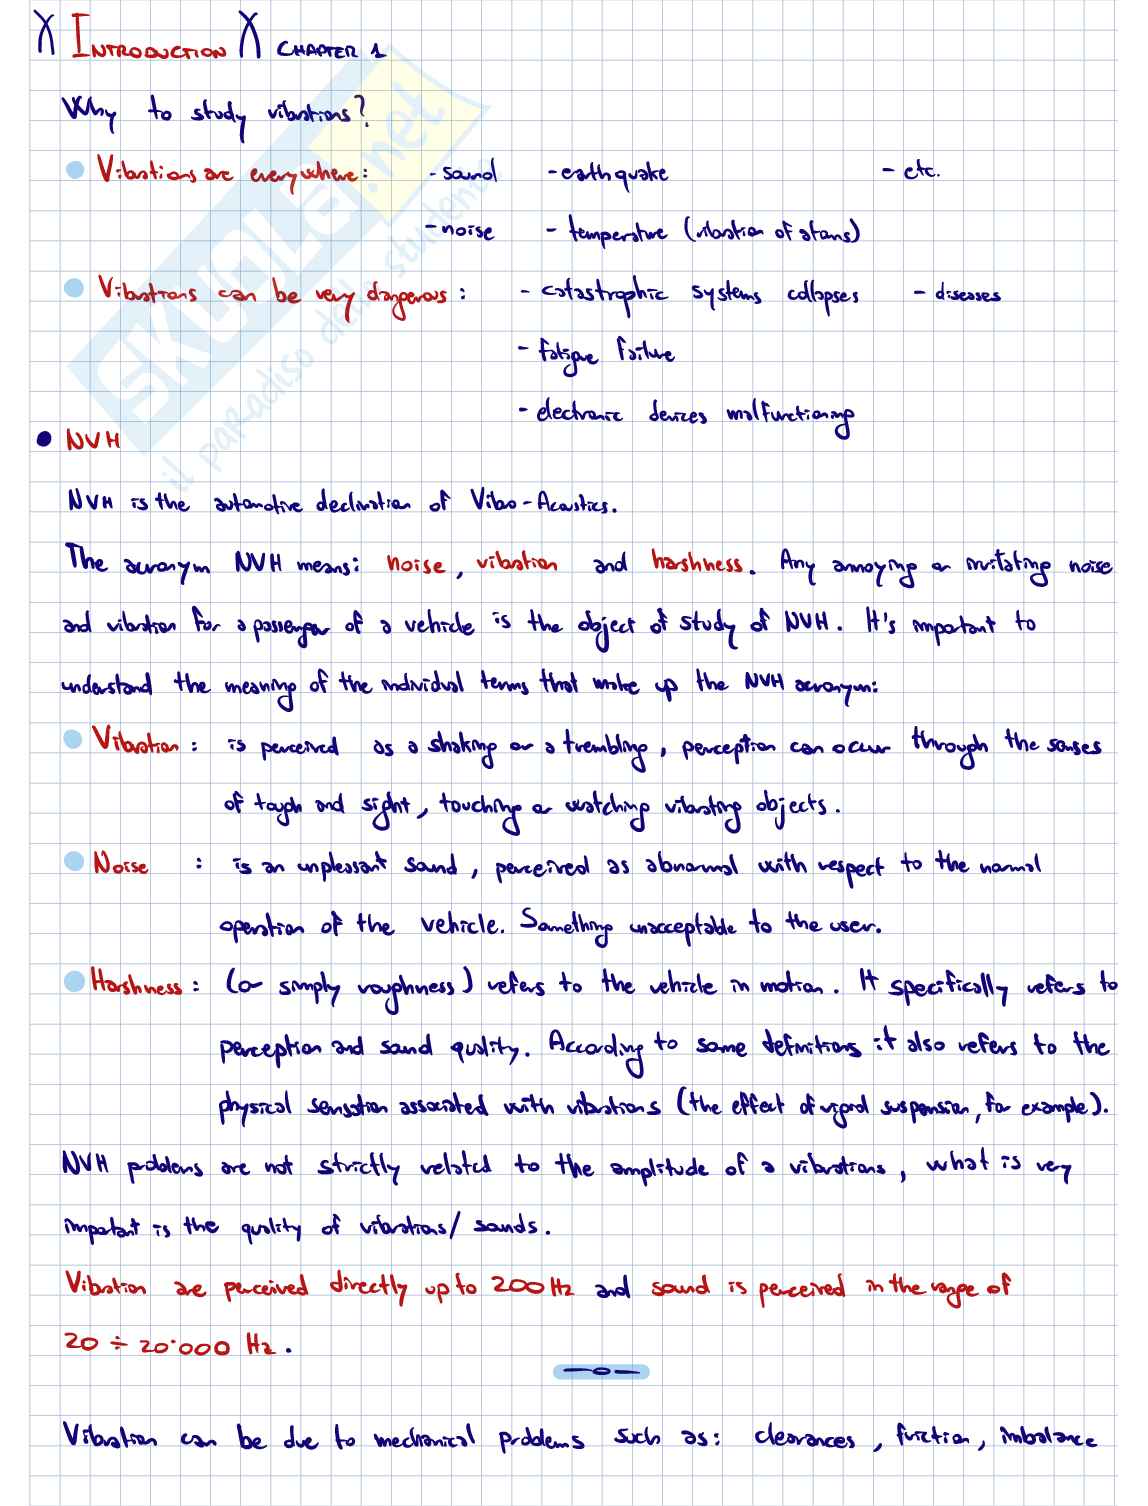 INTRODUCTION CHAPTER 1
Why to study vibrations?
Vibrations are everywhere: - sound - earthquake - etc.
- noise - temperature (vibration of atoms)
Vibrations can be very dangerous: - catastrophic systems collapses - diseases
- fatigue failure
- electronic devices malfunctioning
NVH
NVH is the automotive declination of Vibro-Acoustics.
The acronym NVH means: noise, vibration and harshness. Any annoying or irritating noise
and vibration for a passenger of a vehicle is the object of study of NVH. It's important to
understand the meaning of the individual terms that make up the NVH acronym:
Vibration: is perceived as a shaking or a trembling, perception can occur through the senses
of tough and sight, touching or watching vibrating objects.
Noise: is an unpleasant sound, perceived as abnormal with respect to the normal
operation of the vehicle. Something unacceptable to the user.
Harshness: (or simply roughness) refers to the vehicle in motion. It specifically refers to
perception and sound quality. According to some definitions it also refers to the
physical sensation associated with vibrations (the effect of rigid suspension, for example).
NVH problems are not strictly related to the amplitude of a vibrations, what is very
important is the quality of vibrations/sounds.
Vibration are perceived directly up to 200 Hz and sound is perceived in the range of
20 ÷ 20'000 Hz.
Vibration can be due to mechanical problems such as: clearances, friction, imbalance
SKUOLA.net
il paradiso dello studente